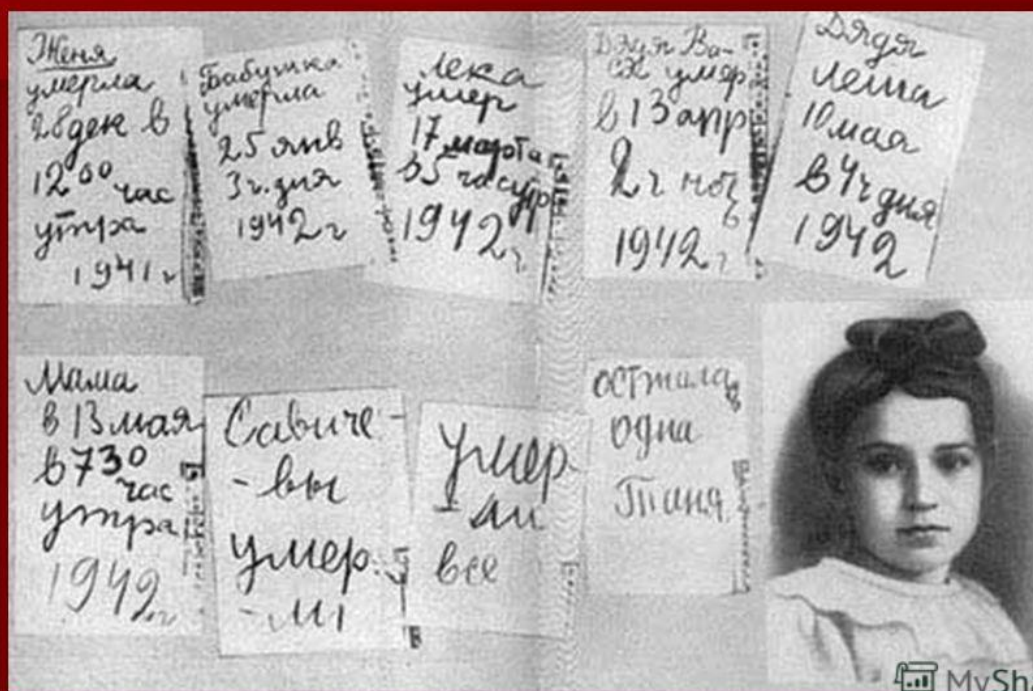 Женя
умерла
28 дек в
12 00 час
утра
1941 г
Бабушка
умерла
25 янв
3 ч. дня
1942 г
Лека
умер
17 марта
в 5 час утр
1942 г.
Дядя Ва-
ся умер
в 13 апр
2 ч ноч
1942 г
Дядя
Леша
10 мая
в 4 ч дня
1942
Мама
в 13 мая
в 7 30
час
утра
1942 г
Савиче-
-вы
умер.
-ли
Умер
-ли
все
Осталась
одна
Таня
MySh